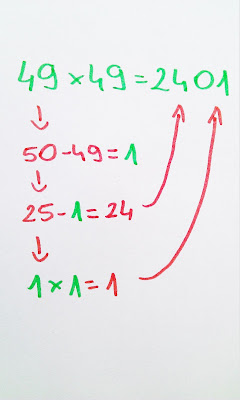 49×49=2401
50-49=1
25-1=24
1×1=1